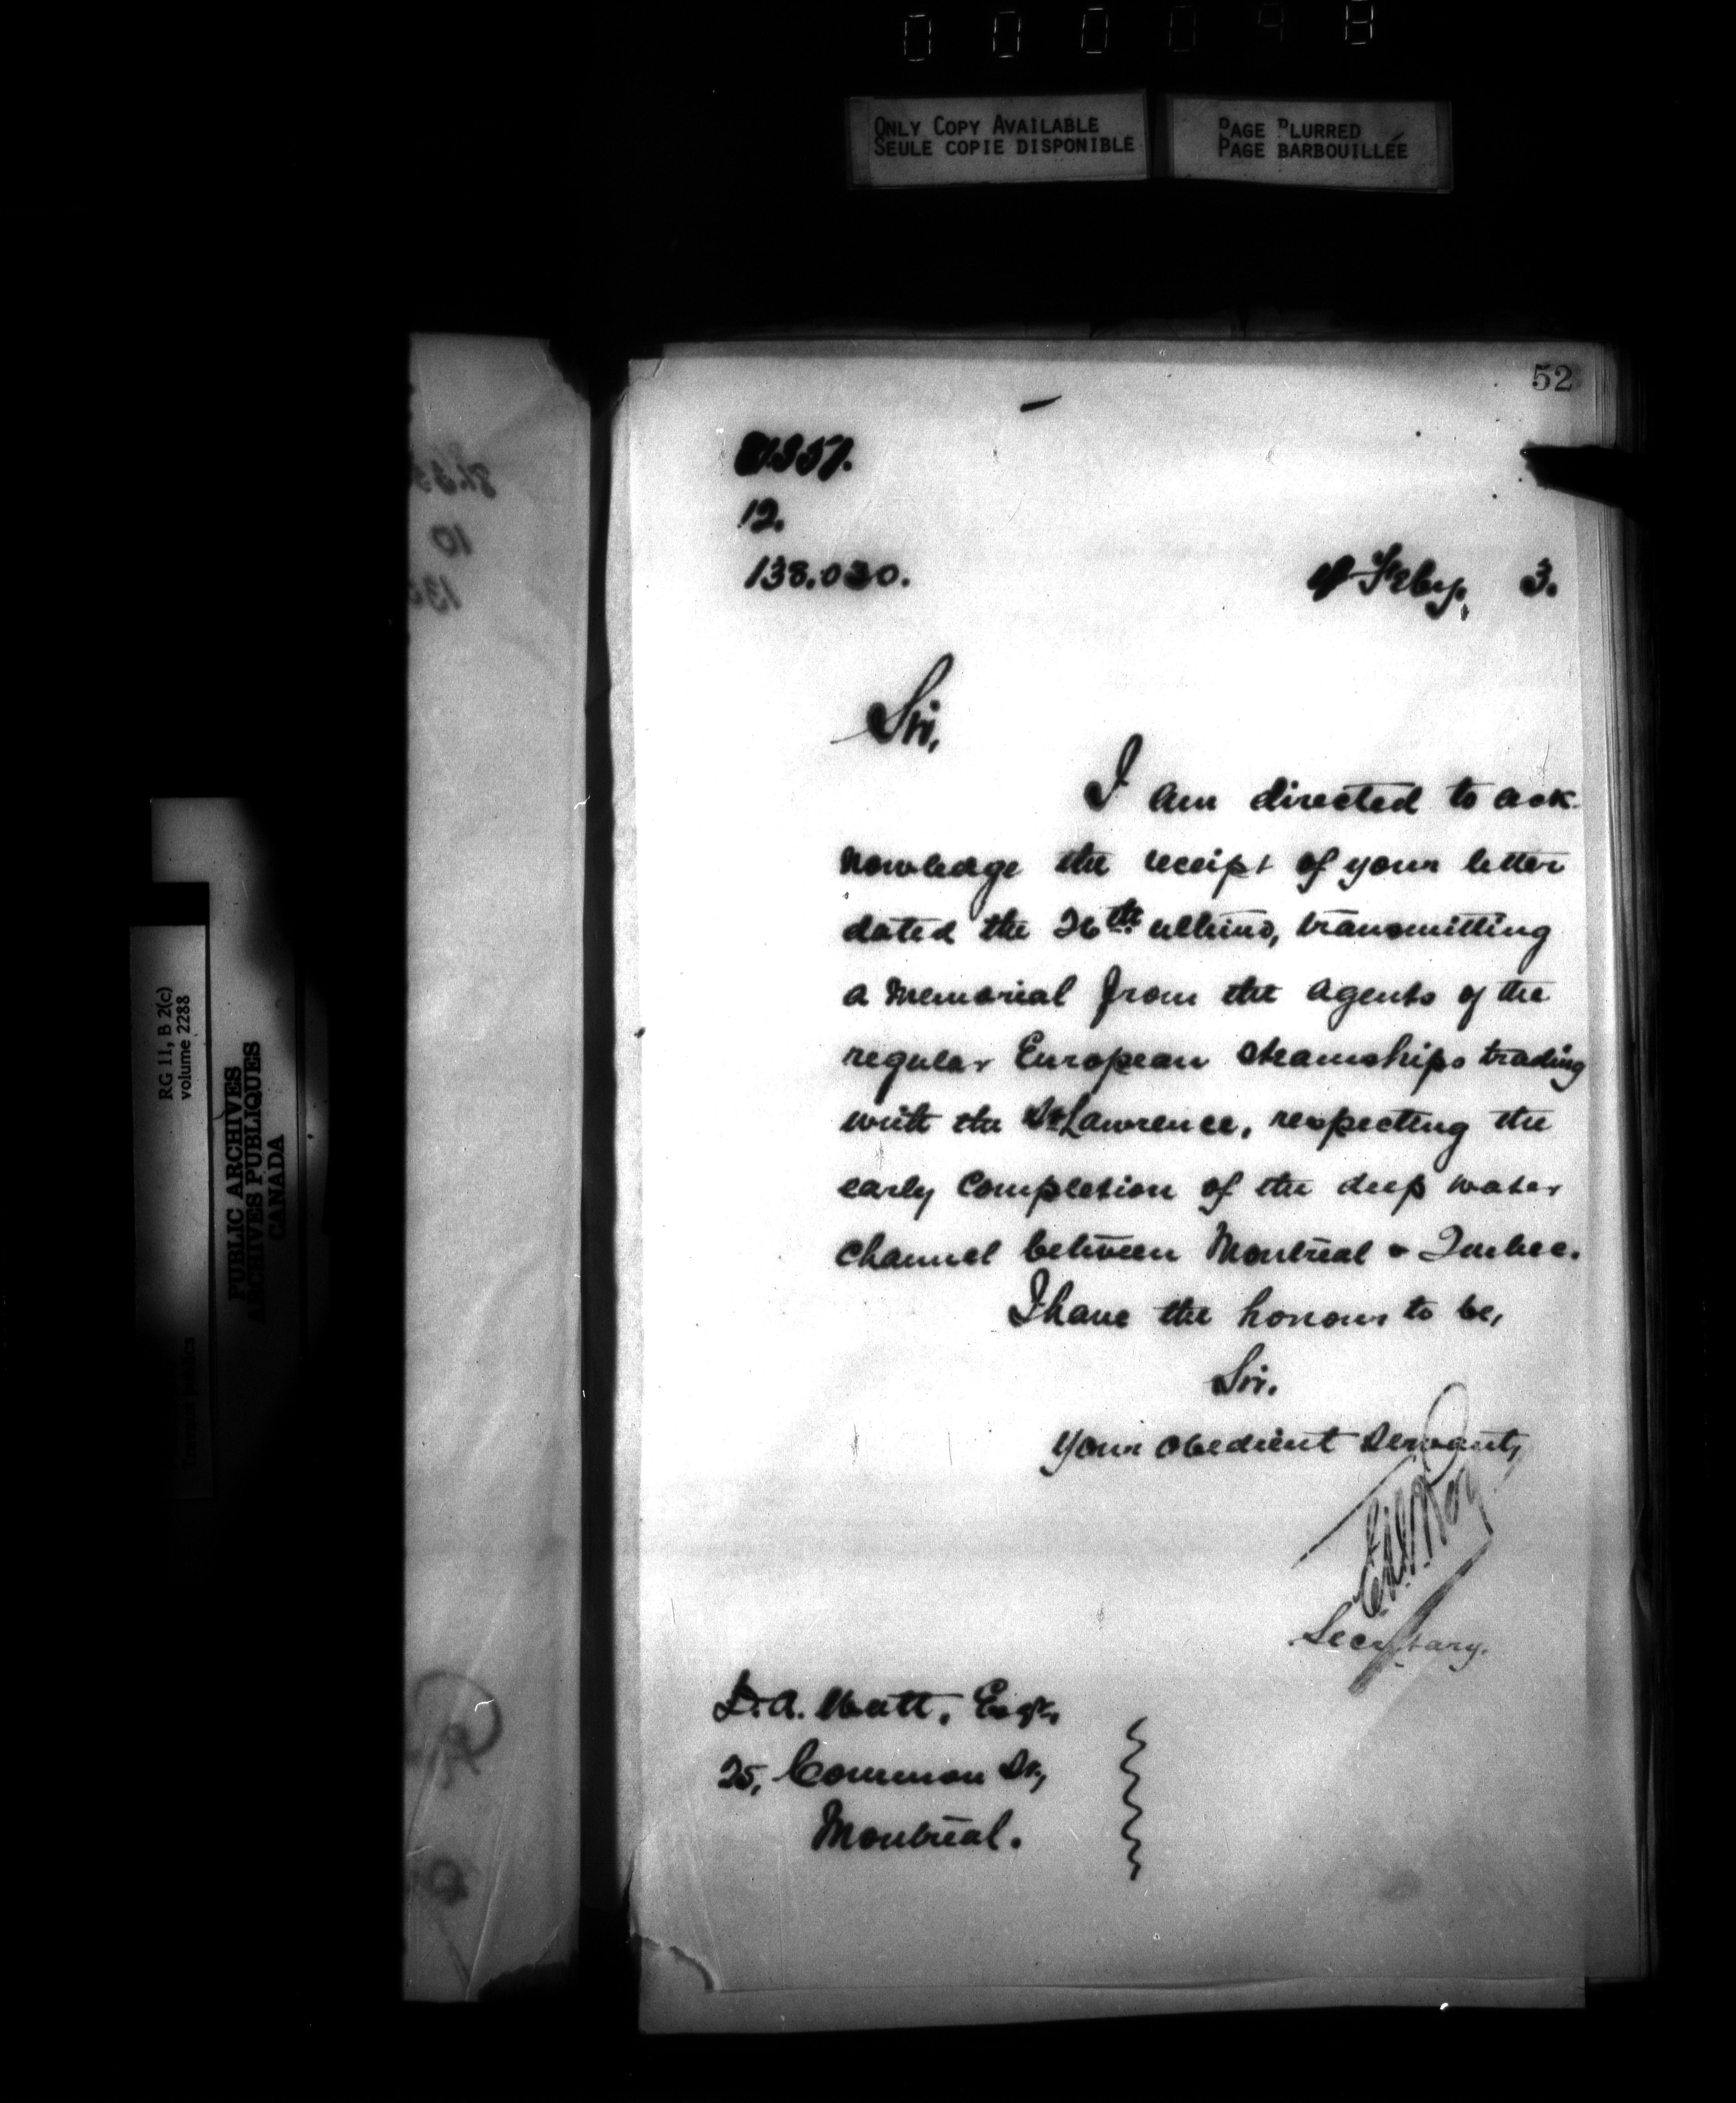 0 0 0 0 4 8
ONLY COPY AVAILABLE
SEULE COPIE DISPONIBLE
PAGE BLURRED
PAGE BARBOUILLÉE
52
12.
138.030.
Feby. 3.
Sir,
I am directed to ack-
nowledge the receipt of your letter
dated the 26th ultimo, transmitting
a Memorial from the agents of the
regular European Steamships trading
with the St Lawrence, respecting the
early completion of the deep water
channel between Montreal & Quebec.
I have the honour to be,
Sir.
Your obedient servant,
Secretary.
D. A. Watt, Esqr.,
25, Common St.,
Montreal.
RG 11, B 2(c)
volume 2288
PUBLIC ARCHIVES
ARCHIVES PUBLIQUES
CANADA
Travaux publics